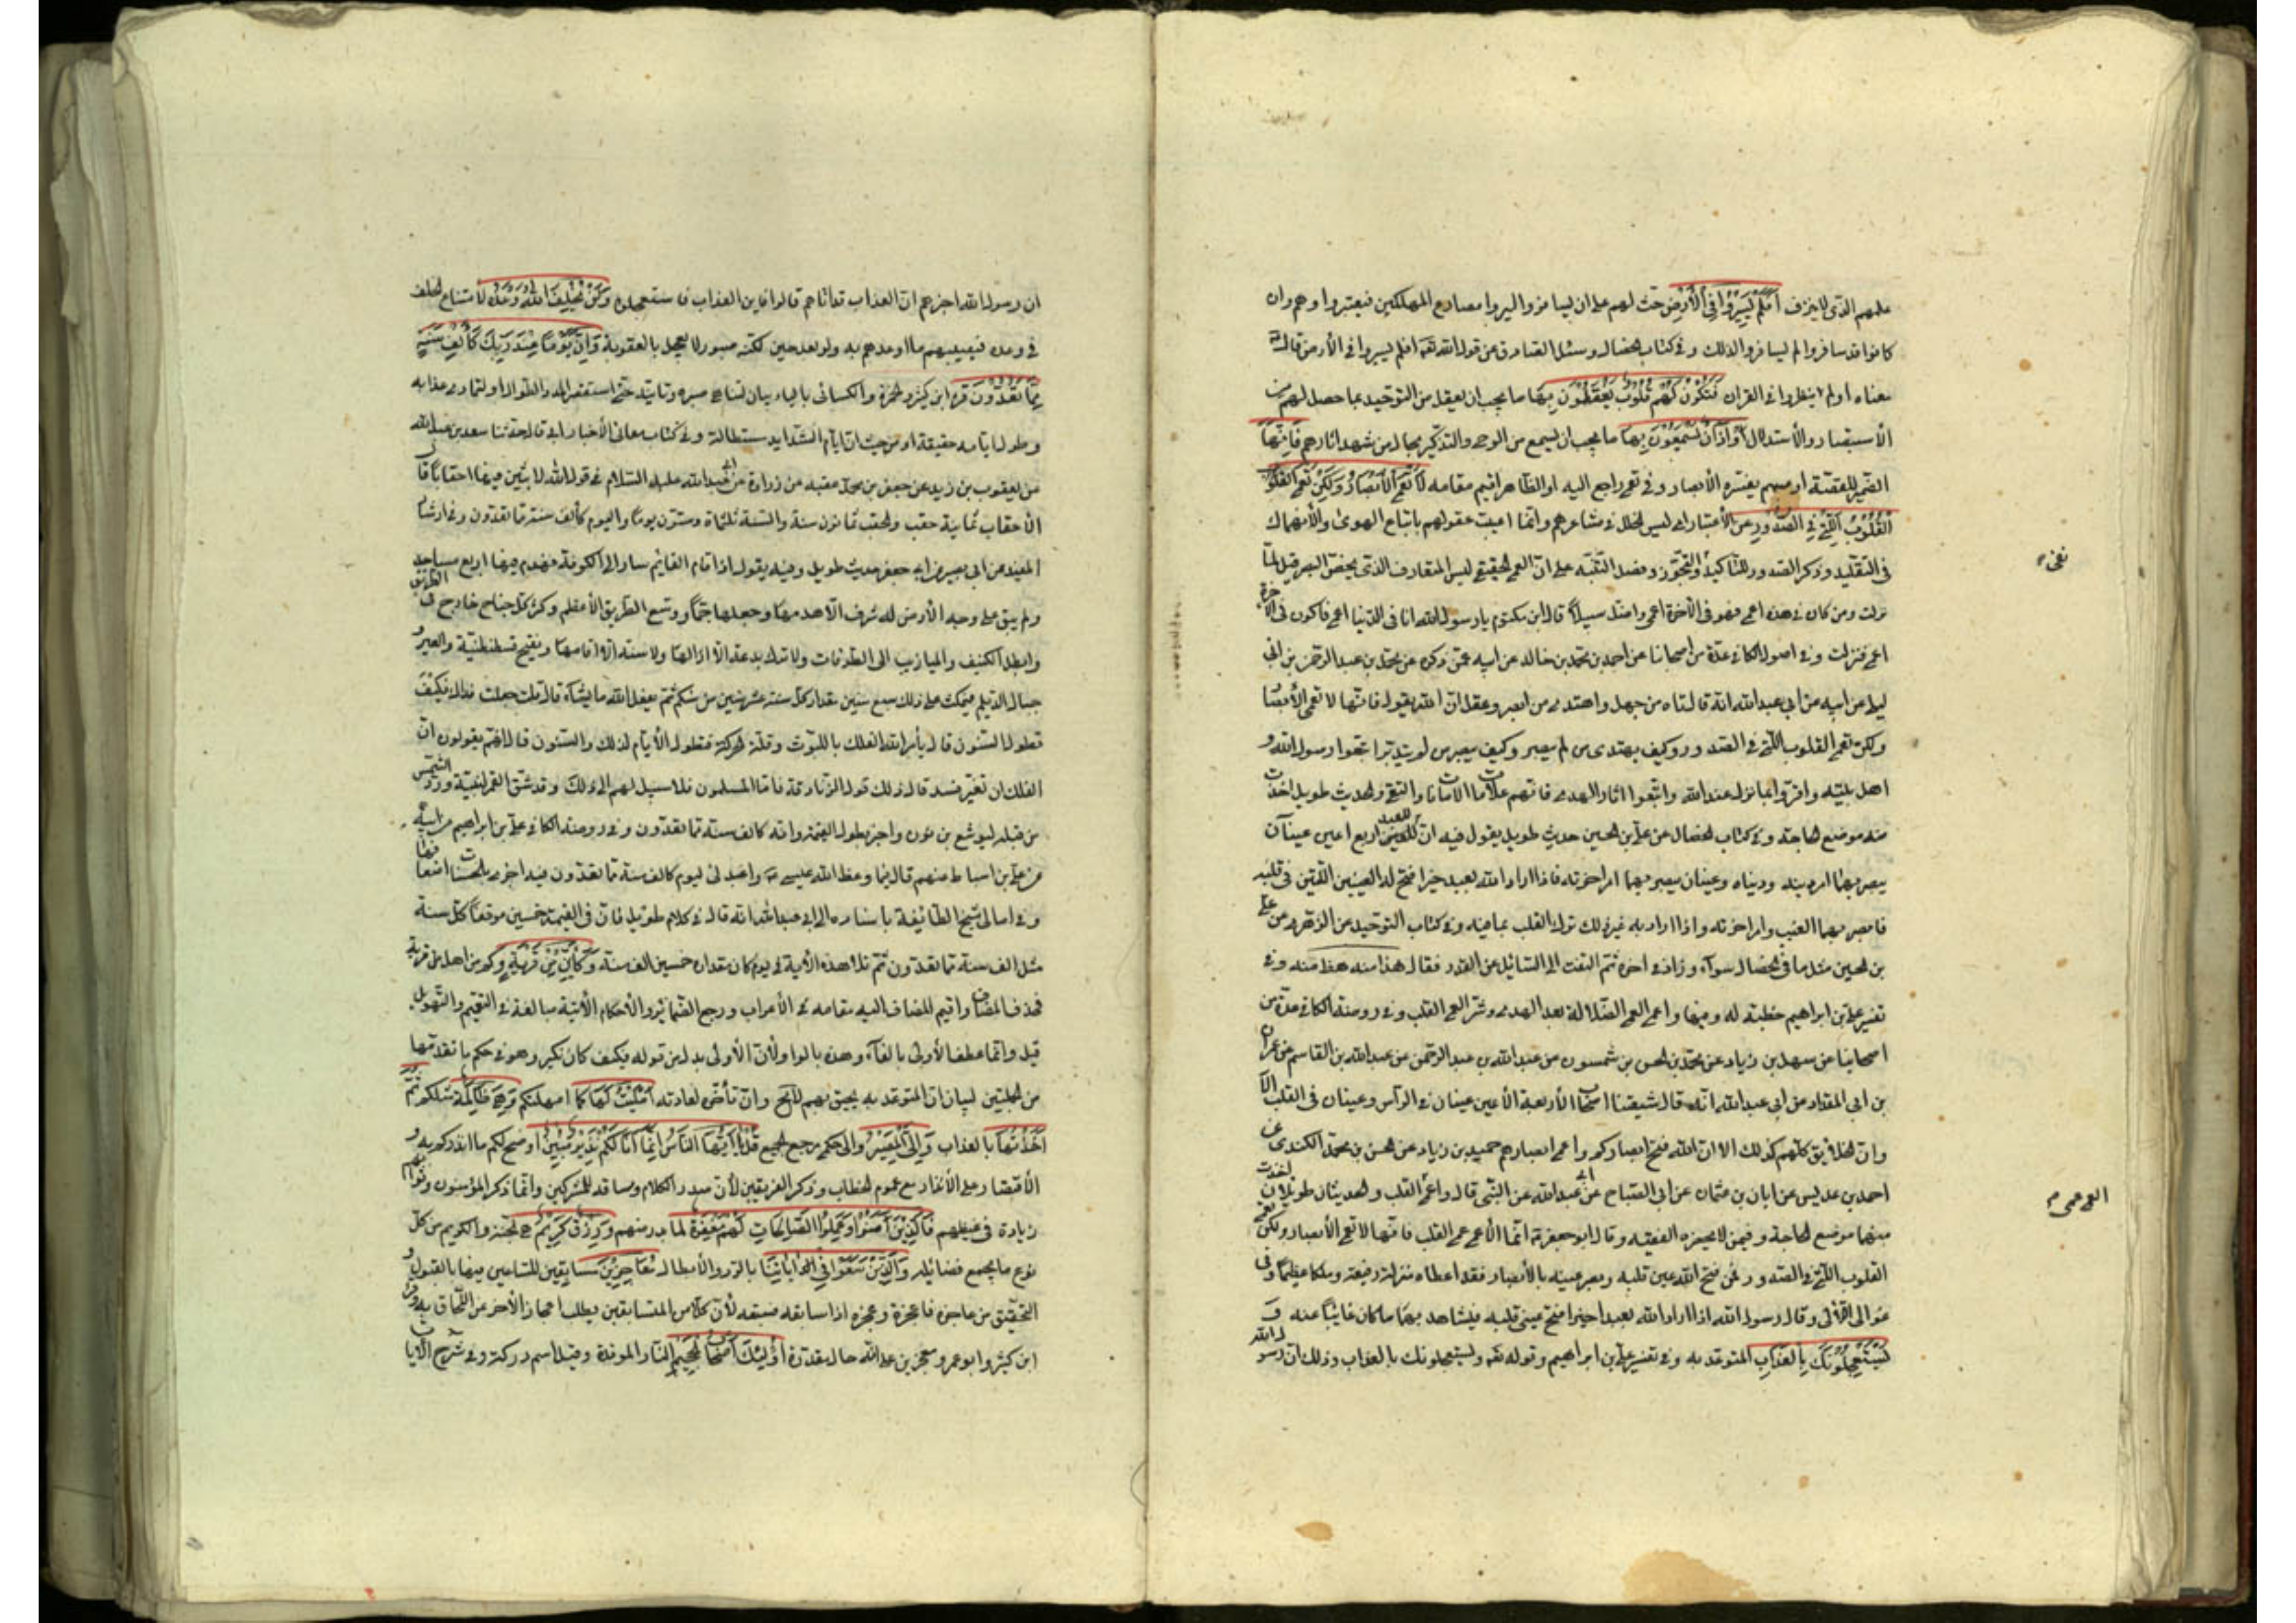 علمهم الذي لا ينزف أَفَلَمْ يَسِيرُوا فِي الْأَرْضِ حث لهم على ان يسافروا ليروا مصارع المهلكين فيعتبروا وهم وان
كانوا قد سافروا لم يسافروا لذلك وفي كتاب الخصال وسئل الصادق عن قول الله تعه افلم يسيروا في الأرض قال
معناه أولم ينظروا في القران فَتَكُونَ لَهُمْ قُلُوبٌ يَعْقِلُونَ بِهَا ما يجب ان يعقل من التوحيد بما حصل لهم من
الاستبصار والاستدلال أَوْ آذَانٌ يَسْمَعُونَ بِهَا ما يجب ان يسمع من الوحي والتذكير بحال من شهد اثارهم فَإِنَّهَا
الضمير للقصة او مبهم يفسره الأبصار وفي تعمى راجع اليه او الظاهر اقيم مقامه لَا تَعْمَى الْأَبْصَارُ وَلَكِنْ تَعْمَى القلو
الْقُلُوبُ الَّتِي فِي الصُّدُورِ عن الأعتبار اي ليس الخلل في مشاعرهم وانما اصيبت عقولهم باتباع الهوى والأنهماك
في التقليد وذكر الصدور للتأكيد ونفي التجوز وفضل التنبيه على ان العمى الحقيقي ليس المتعارف الذي يخص البصر قيل لما
نزلت ومن كان في هذه اعمى فهو في الآخرة اعمى واضل سبيلا قال ابن مكتوم يا رسول الله انا في الدنيا اعمى فاكون في الآخرة
اعمى فنزلت وفي اصول الكافي عدة من اصحابنا عن احمد بن محمد بن خالد عن ابيه عمن ذكره عن محمد بن عبد الرحمن بن ابي
ليلى عن ابيه عن ابي عبد الله انه قال تاه من جهل واهتدى من ابصر وعقل ان الله يقول فانها لا تعمى الأبصا
ولكن تعمى القلوب التي في الصدور وكيف يهتدي من لم يبصر وكيف يبصر من لم يتدبر اتبعوا رسول الله و
اهل بيته واقروا بما نزل عند الله واتبعوا اثار الهدى فانهم علامات الامانات والتقى والحديث طويل اخذت
منه موضع الحاجة وفي كتاب الخصال عن علي بن الحسين حديث طويل يقول فيه ان للعبد اربع اعين عينان
يبصر بهما امر دينه ودنياه وعينان يبصر بهما امر اخرته فاذا اراد الله بعبد خيرا فتح له العينين اللتين في قلبه
فابصر بهما الغيب وامر اخرته واذا اراد به غير ذلك ترك القلب بما فيه وفي كتاب التوحيد عن الزهري عن علي
بن الحسين مثل ما في الخصال سواء وزاد في اخره ثم التفت الى السائل عن القدر فقال هذا منه هذا منه وفي
تفسير علي بن ابراهيم خطبة له وفيها واعمى العمى الضلالة بعد الهدى وشر العمى عمى القلب وفي روضة الكافي عدة من
اصحابنا عن سهل بن زياد عن محمد بن الحسن بن شمون عن عبد الله بن عبد الرحمن عن عبد الله بن القاسم عن عمرو
بن ابي المقدام عن ابي عبد الله انه قال شيعتنا اصحاب الأربعة الأعين عينان في الرأس وعينان في القلب الا
وان الخلايق كلهم كذلك الا ان الله فتح ابصاركم واعمى ابصارهم حميد بن زياد عن الحسن بن محمد الكندي عن
احمد بن عديس عن ابان بن عثمان عن ابي الصباح عن ابي عبد الله عن النبي قال واعمى العمى عمى القلب والحديثان طويلان اخذت
منهما موضع الحاجة وفيمن لا يحضره الفقيه وقال ابو جعفر انما الأعمى عمى القلب فانها لا تعمى الأبصار ولكن تعمى
القلوب التي في الصدور فمن فتح الله عين قلبه وبصر عينه بالأبصار فقد اعطاه منزلة رفيعة وملكا عظيما وفي
عوالي اللآلي وقال رسول الله اذا اراد الله بعبد اخيرا فتح عيني قلبه فيشاهد بهما ما كان غايبا عنه وَ
يَسْتَعْجِلُونَكَ بِالْعَذَابِ المتوعد به وفي تفسير علي بن ابراهيم وقوله تعه ويستعجلونك بالعذاب وذلك ان رسول الله
نفي
العمى عمى
ان رسول الله اخبرهم ان العذاب قد اتاهم قالوا فاين العذاب فاستعجلوه وَلَنْ يُخْلِفَ اللَّهُ وَعْدَهُ لأمتناع الخلف
في وعده فيصيبهم ما اوعدهم به ولو بعد حين لكنه صبور لا يعجل بالعقوبة وَإِنَّ يَوْمًا عِنْدَ رَبِّكَ كَأَلْفِ سَنَةٍ
مِمَّا تَعُدُّونَ قرء ابن كثير وحمزة والكسائي بالياء بيان لتناهي صبره وتأنيه حتى استقصر المدد الطوال او لتمادي عذابه
وطول ايامه حقيقة او من حيث ان ايام الشدايد مستطالة وفي كتاب معاني الأخبار ابي قال حدثنا سعد بن عبد الله
عن يعقوب بن زيد عن جعفر بن محمد بن عقبه عن زرارة عن ابي عبد الله عليه السلام في قول الله لابثين فيها احقابا قال
الأحقاب ثمانية حقب والحقب ثمانون سنة والسنة ثلثماة وستون يوما واليوم كألف سنة مما تعدون وفي ارشاد
المفيد عن ابي بصير عن ابي جعفر حديث طويل وفيه يقول اذا قام القائم سار الى الكوفة فهدم فيها اربع مساجد
ولم يبق على وجه الأرض له شرف الا هدمها وجعلها جما ووسع الطريق الأعظم وكسر كل جناح خارج في الطريق
وابطل الكنيف والميازيب الى الطرقات ولا يترك بدعة الا ازالها ولا سنة الا اقامها ويفتح قسطنطنية والصين و
جبال الديلم فيمكث على ذلك سبع سنين مقدار كل سنة عشر سنين من سنيكم ثم يفعل الله ما يشاء قال قلت جعلت فداك فكيف
تطول السنون قال يأمر الله الفلك باللبوث وقلة الحركة فتطول الأيام لذلك والسنون قال انهم يقولون ان
الفلك ان تغير فسد قال ذلك قول الزنادقة فاما المسلمون فلا سبيل لهم الى ذلك وقد شق القمر لنبيه ورد الشمس
من قبله ليوشع بن نون واخبر بطول القيمة وانه كالف سنة مما تعدون وفي روضة الكافي علي بن ابراهيم عن ابيه
عن علي بن اسباط عنهم قال فيما وعظ الله عيسى واعبدني ليوم كالف سنة مما تعدون فيه اجزي بالحسنة اضعافها
وفي امالي شيخ الطائفة باسناده الى ابي عبد الله انه قال في كلام طويل فان في القيمة خمسين موقفا كل سنة
مثل الف سنة مما تعدون ثم تلا هذه الأية في يوم كان مقداره خمسين الف سنة وَكَأَيِّنْ مِنْ قَرْيَةٍ وكم من اهل قرية
فحذف المضاف واقيم المضاف اليه مقامه في الأعراب ورجع الضمائر والأحكام الأتية مبالغة في التعميم والتهويل
قيل وانما عطف الأولى بالفاء وهذه بالواو لأن الأولى بدل من قوله فكيف كان نكير وهو في حكم ما تقدمها
من الجملتين لبيان ان المتوعد به يحيق بهم لا مح وان تأخر لعادته أَمْلَيْتُ لَهَا كما امهلتكم وَهِيَ ظَالِمَةٌ مثلكم ثُمَّ
أَخَذْتُهَا بالعذاب وَإِلَيَّ الْمَصِيرُ والى حكمي مرجع الجميع قُلْ يَا أَيُّهَا النَّاسُ إِنَّمَا أَنَا لَكُمْ نَذِيرٌ مُبِينٌ اوضح لكم ما انذركم به و
الأقتصار على الأنذار مع عموم الخطاب وذكر الفريقين لأن صدر الكلام ومساقه للمشركين وانما ذكر المؤمنون وثوابهم
زيادة في غيظهم فَالَّذِينَ آمَنُوا وَعَمِلُوا الصَّالِحَاتِ لَهُمْ مَغْفِرَةٌ لما بدر منهم وَرِزْقٌ كَرِيمٌ هي الجنة والكريم من كل
نوع ما يجمع فضايله وَالَّذِينَ سَعَوْا فِي آيَاتِنَا بالرد والأبطال مُعَاجِزِينَ مسابقين للساعين فيها بالقبول و
التحقيق من عاجزه فاعجزه وعجزه اذا سابقه فسبقه لأن كلا من المتسابقين يطلب اعجاز الأخر عن اللحاق به وقرء
ابن كثير وابو عمرو معجزين على انه حال مقدرة أُولَئِكَ أَصْحَابُ الْجَحِيمِ النار الموقدة وقيل اسم دركة وفي شرح الآيات